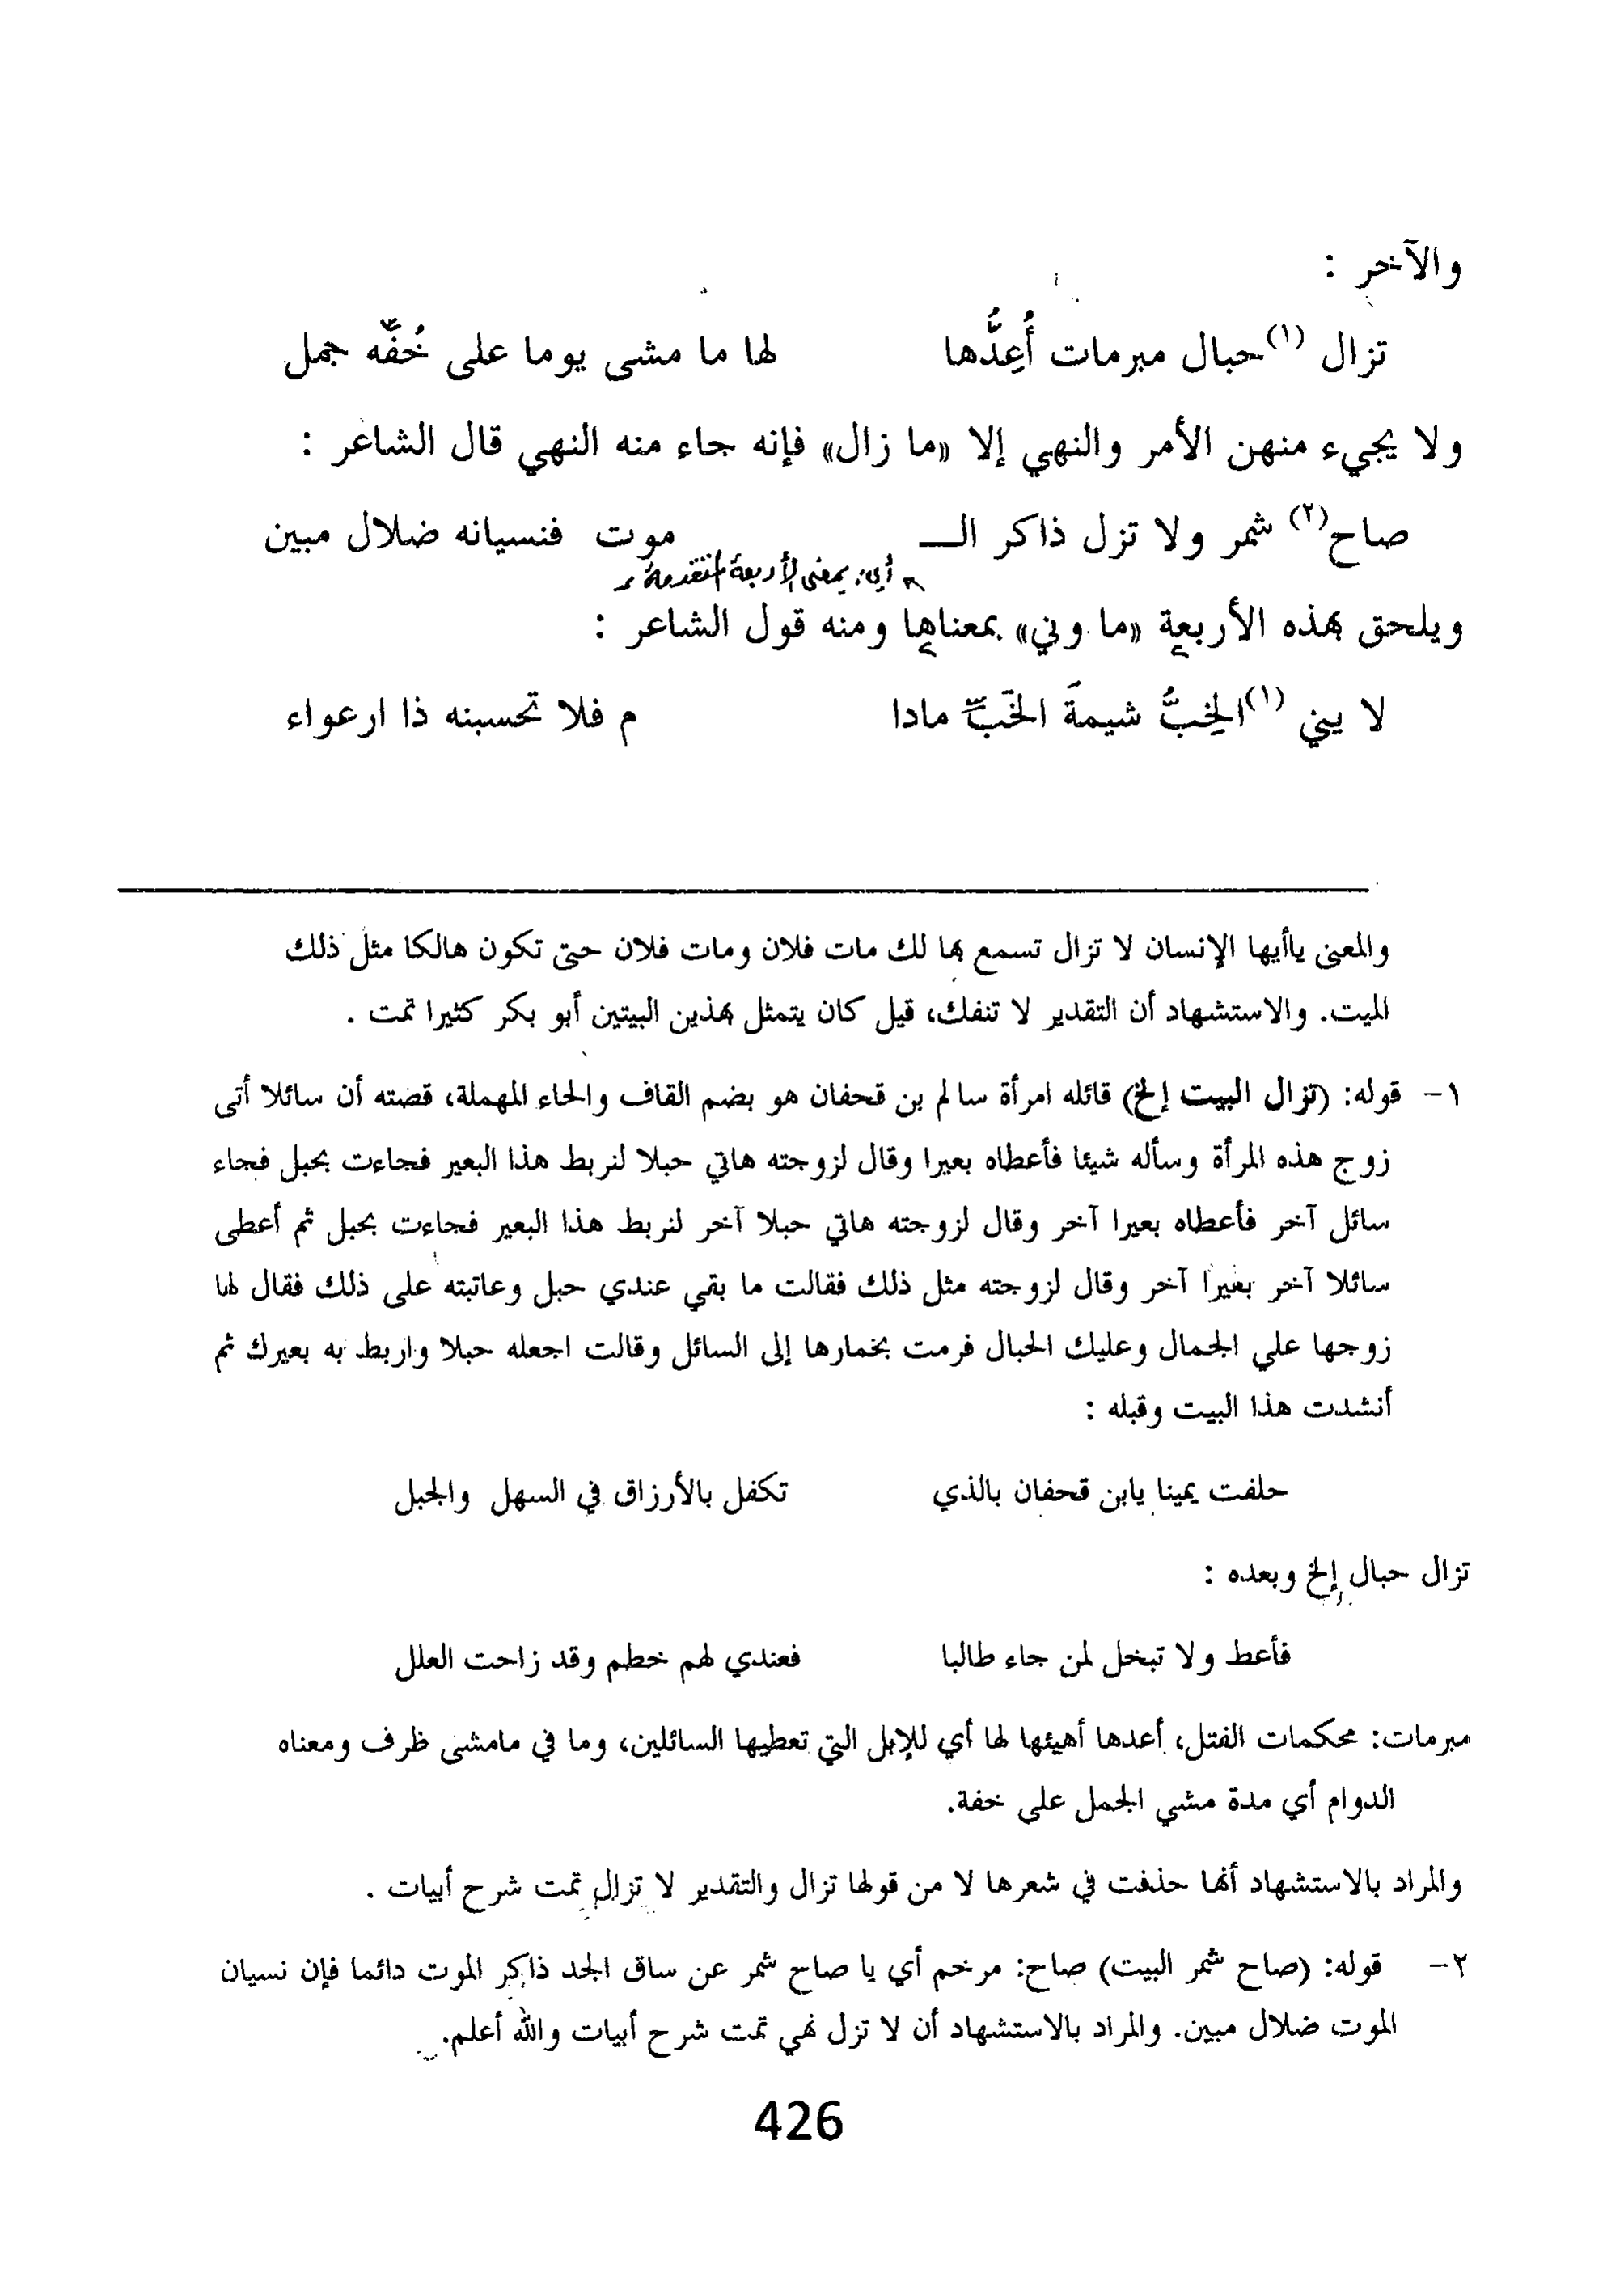 والآخر :
تزال (١) حبال مبرمات أُعِدُّها لها ما مشى يوما على خُفِّه جمل
ولا يجيء منهن الأمر والنهي إلا «ما زال» فإنه جاء منه النهي قال الشاعر :
صاح(٢) شمر ولا تزل ذاكر الـــ موت فنسيانه ضلال مبين
أي: بمعنى الأربعة المتقدمة
ويلحق بهذه الأربعة «ما وني» بمعناها ومنه قول الشاعر :
لا يني (١) الخِبُّ شيمةَ الخَبِّ مادا م فلا تحسبنه ذا ارعواء
والمعنى ياأيها الإنسان لا تزال تسمع بها لك مات فلان ومات فلان حتى تكون هالكا مثل ذلك
الميت. والاستشهاد أن التقدير لا تنفك، قيل كان يتمثل بهذين البيتين أبو بكر كثيرا تمت .
١- قوله: (تزال البيت إلخ) قائله امرأة سالم بن قحفان هو بضم القاف والحاء المهملة، قصته أن سائلا أتى
زوج هذه المرأة وسأله شيئا فأعطاه بعيرا وقال لزوجته هاتي حبلا لنربط هذا البعير فجاءت بحبل فجاء
سائل آخر فأعطاه بعيرا آخر وقال لزوجته هاتي حبلا آخر لنربط هذا البعير فجاءت بحبل ثم أعطى
سائلا آخر بعيرا آخر وقال لزوجته مثل ذلك فقالت ما بقي عندي حبل وعاتبته على ذلك فقال لها
زوجها علي الجمال وعليك الحبال فرمت بخمارها إلى السائل وقالت اجعله حبلا واربط به بعيرك ثم
أنشدت هذا البيت وقبله :
حلفت يمينا يابن قحفان بالذي تكفل بالأرزاق في السهل والجبل
تزال حبال إلخ وبعده :
فأعط ولا تبخل لمن جاء طالبا فعندي لهم خطم وقد زاحت العلل
مبرمات: محكمات الفتل، أعدها أهيئها لها أي للإبل التي تعطيها السائلين، وما في مامشى ظرف ومعناه
الدوام أي مدة مشي الجمل على خفة.
والمراد بالاستشهاد أنها حذفت في شعرها لا من قولها تزال والتقدير لا تزال تمت شرح أبيات .
٢- قوله: (صاح شمر البيت) صاح: مرخم أي يا صاح شمر عن ساق الجد ذاكر الموت دائما فإن نسيان
الموت ضلال مبين. والمراد بالاستشهاد أن لا تزل نهي تمت شرح أبيات والله أعلم.
426